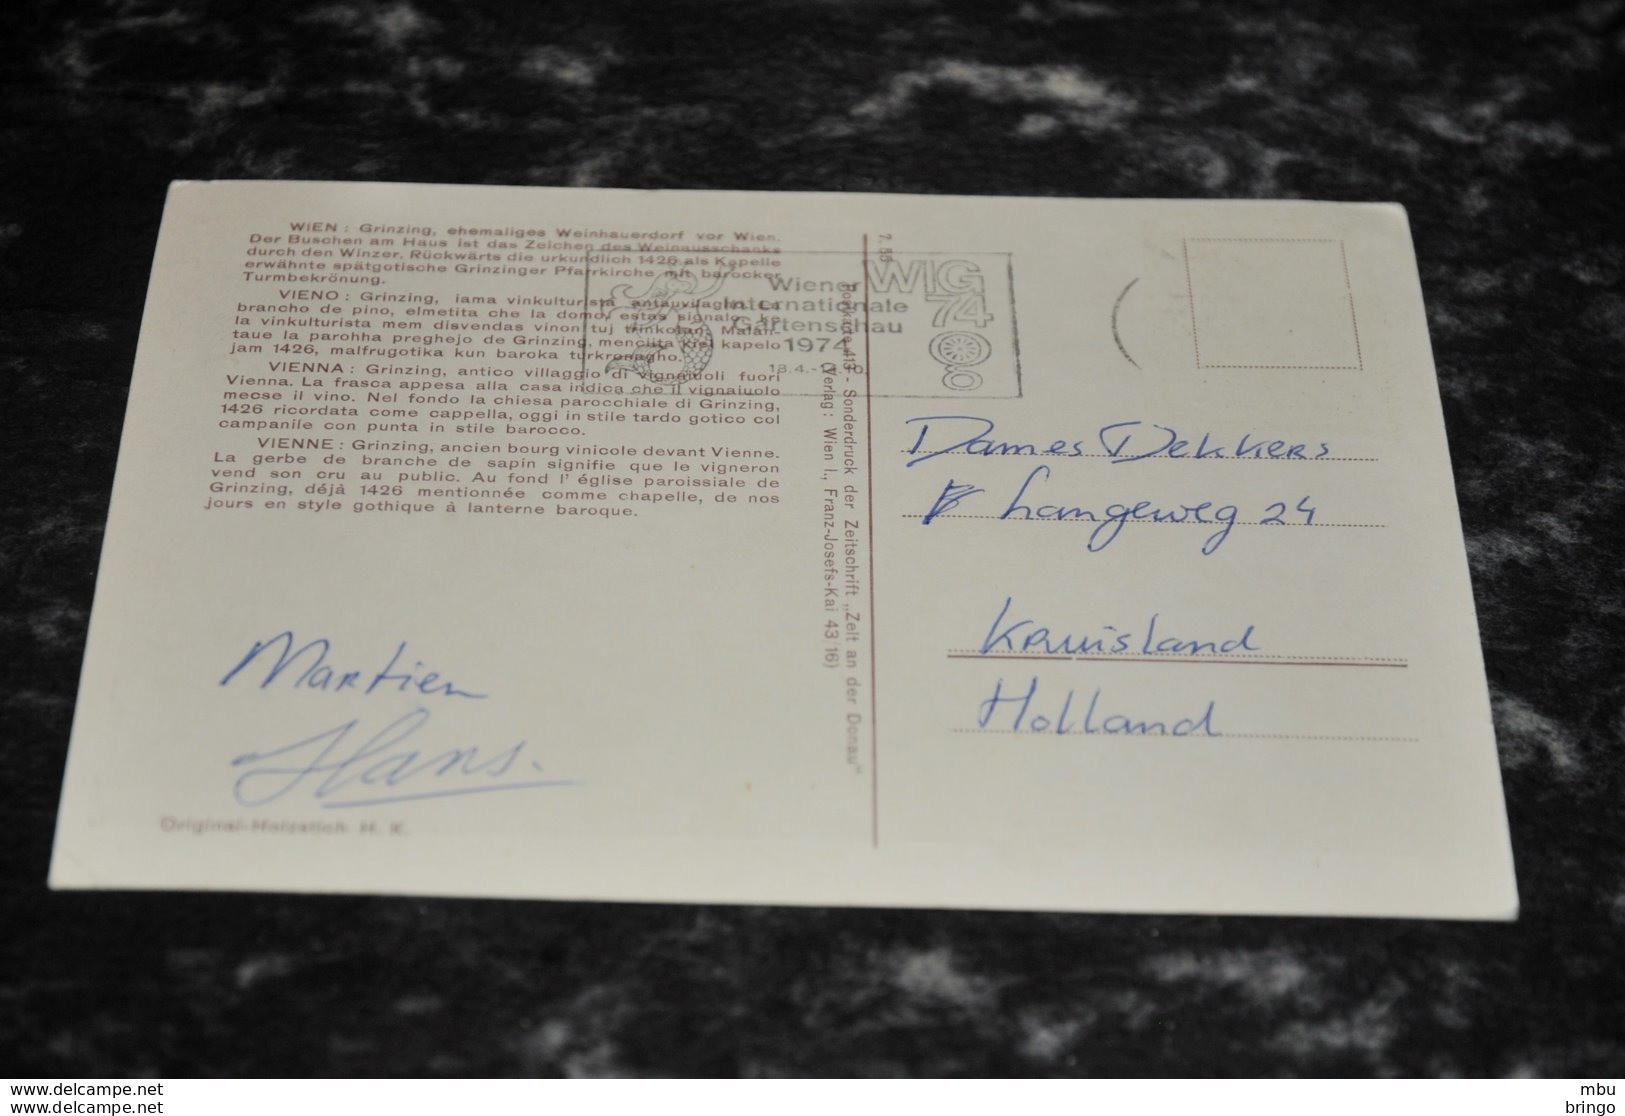 WIEN : Grinzing, ehemaliges Weinhauerdorf vor Wien.
Der Buschen am Haus ist das Zeichen des Weinausschanks
durch den Winzer. Rückwärts die urkundlich 1426 als Kapelle
erwähnte spätgotische Grinzinger Pfarrkirche mit barocker
Turmbekrönung.
VIENO : Grinzing, iama vinkulturista antauvilagho. La
brancho de pino, elmetita che la domo, estas signalo, ke
la vinkulturista mem disvendas vinon tuj trinkotan. Malan-
taue la parohha preghejo de Grinzing, menciita kiel kapelo
jam 1426, malfrugotika kun baroka turkronagho.
VIENNA : Grinzing, antico villaggio di vignaiuoli fuori
Vienna. La frasca appesa alla casa indica che il vignaiuolo
mecse il vino. Nel fondo la chiesa parocchiale di Grinzing,
1426 ricordata come cappella, oggi in stile tardo gotico col
campanile con punta in stile barocco.
VIENNE : Grinzing, ancien bourg vinicole devant Vienne.
La gerbe de branche de sapin signifie que le vigneron
vend son cru au public. Au fond l' église paroissiale de
Grinzing, déjà 1426 mentionnée comme chapelle, de nos
jours en style gothique à lanterne baroque.
Martien
Hans.
Original-Holzstich H. K.
Wiener
Internationale
Gartenschau
1974
18.4.-14.10.
WIG
74
Postkarte 413 - Sonderdruck der Zeitschrift „Zelt an der Donau"
(Verlag: Wien I., Franz-Josefs-Kai 43|16)
Dames Dekkers
Langeweg 24
Kruisland
Holland
www.delcampe.net
www.delcampe.net
mbu
bringo